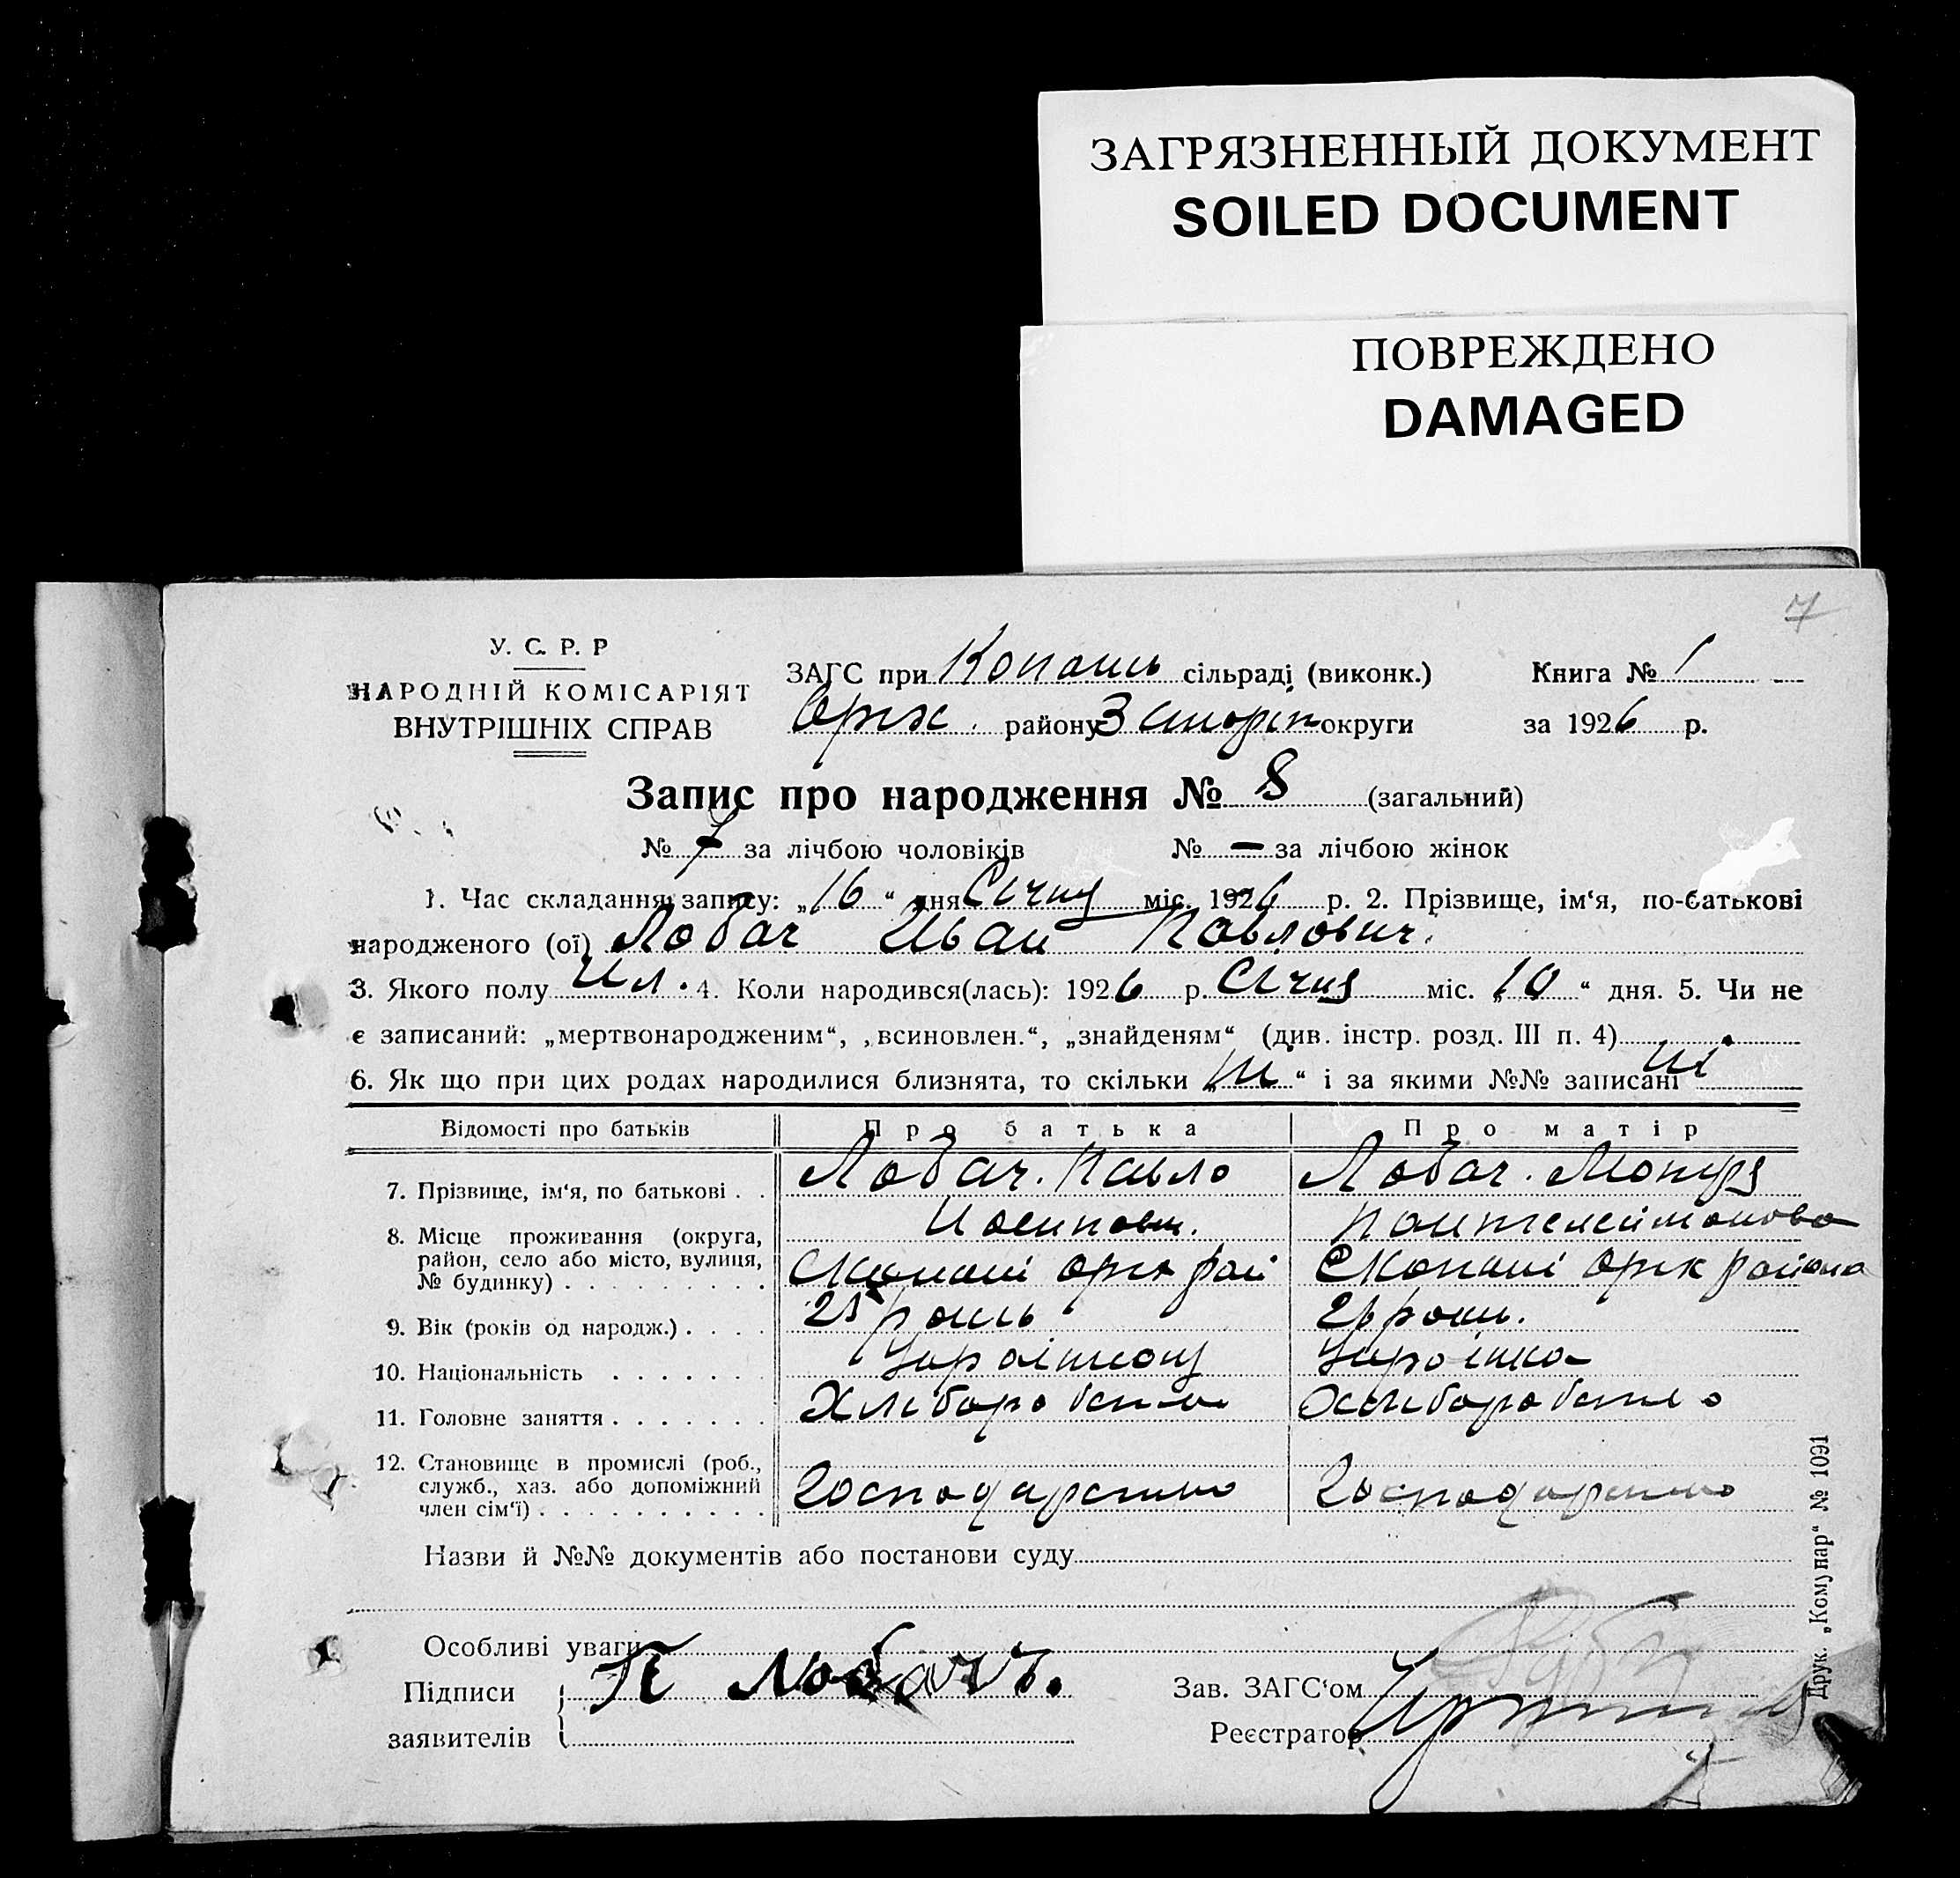 ЗАГРЯЗНЕННЫЙ ДОКУМЕНТ
SOILED DOCUMENT
ПОВРЕЖДЕНО
DAMAGED
7
У. С. Р. Р
НАРОДНІЙ КОМІСАРІЯТ
ВНУТРІШНІХ СПРАВ
ЗАГС при Копань сільраді (виконк.) Книга № 1
Оріх. району Запоріж округи за 1926 р.
Запис про народження № 8 (загальний)
№ 7 за лічбою чоловіків № — за лічбою жінок
1. Час складання запису: „16“ дня Січня міс. 1926 р. 2. Прізвище, ім‘я, по-батькові
народженого (ої) Лобач Иван Павлович.
3. Якого полу 4. Коли народився(лась): 1926 р. Січня міс. „10“ дня. 5. Чи не
є записаний: „мертвонародженим“, „всиновлен.“, „знайденям“ (див. інстр. розд. III п. 4)
6. Як що при цих родах народилися близнята, то скільки „ні“ і за якими №№ записані ні
Відомості про батьків Про батька Про матір
7. Прізвище, ім‘я, по батькові . . Лобач. Павло Лобач.
8. Місце проживання (округа, Иосипов. Пантелеймонова
район, село або місто, вулиця,
№ будинку) . . . . . . . . . Копані Оріх рай Копані Оріх района
9. Вік (років од народж.) . . . . роців роців.
10. Національність . . . . . . . Українка
11. Головне заняття . . . . . . . Хліборобство Хліборобство
12. Становище в промислі (роб.,
служб., хаз. або допоміжний Господарство Господарство
член сім‘ї) . . . . . . . . . .
Назви й №№ документів або постанови суду
Особливі уваги
Підписи П Лобачъ. Зав. ЗАГС‘ом
заявителів Реєстратор
Друк. „Комунар“ № 1091